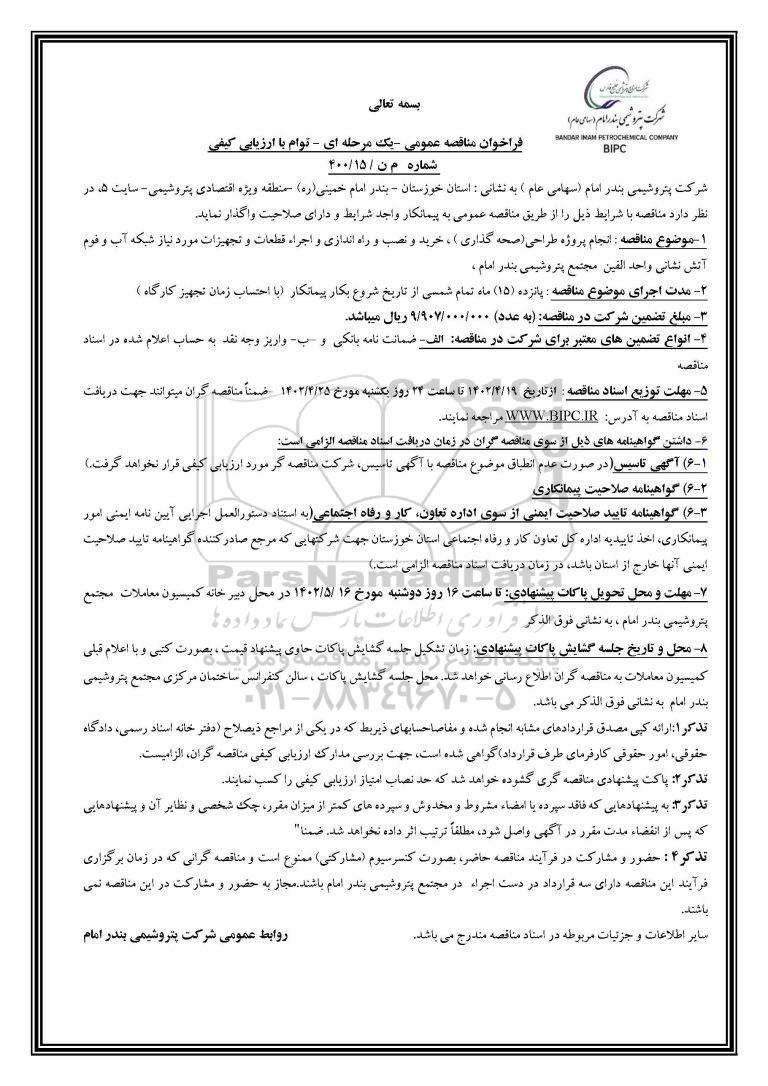 بسمه تعالی
شرکت پتروشیمی بندر امام (سهامی عام)
BANDAR IMAM PETROCHEMICAL COMPANY
BIPC
فراخوان مناقصه عمومی -یک مرحله ای - توام با ارزیابی کیفی
شماره م ن / ۴۰۰/۱۵
شرکت پتروشیمی بندر امام (سهامی عام ) به نشانی : استان خوزستان - بندر امام خمینی(ره) -منطقه ویژه اقتصادی پتروشیمی- سایت ۵، در
نظر دارد مناقصه با شرایط ذیل را از طریق مناقصه عمومی به پیمانکار واجد شرایط و دارای صلاحیت واگذار نماید.
۱-موضوع مناقصه : انجام پروژه طراحی(صحه گذاری ) ، خرید و نصب و راه اندازی و اجراء قطعات و تجهیزات مورد نیاز شبکه آب و فوم
آتش نشانی واحد الفین مجتمع پتروشیمی بندر امام ،
۲- مدت اجرای موضوع مناقصه : پانزده (۱۵) ماه تمام شمسی از تاریخ شروع بکار پیمانکار (با احتساب زمان تجهیز کارگاه )
۳- مبلغ تضمین شرکت در مناقصه: (به عدد) ۹/۹۰۷/۰۰۰/۰۰۰ ریال میباشد.
۴- انواع تضمین های معتبر برای شرکت در مناقصه: الف- ضمانت نامه بانکی و -ب- واریز وجه نقد به حساب اعلام شده در اسناد
مناقصه
۵- مهلت توزیع اسناد مناقصه : ازتاریخ ۱۴۰۲/۴/۱۹ تا ساعت ۲۴ روز یکشنبه مورخ ۱۴۰۲/۴/۲۵ -ضمناً مناقصه گران میتوانند جهت دریافت
اسناد مناقصه به آدرس: WWW.BIPC.IR مراجعه نمایند.
۶- داشتن گواهینامه های ذیل از سوی مناقصه گران در زمان دریافت اسناد مناقصه الزامی است:
۶-۱) آگهی تاسیس(در صورت عدم انطباق موضوع مناقصه با آگهی تاسیس، شرکت مناقصه گر مورد ارزیابی کیفی قرار نخواهد گرفت.)
۶-۲) گواهینامه صلاحیت پیمانکاری
۶-۳) گواهینامه تایید صلاحیت ایمنی از سوی اداره تعاون، کار و رفاه اجتماعی(به استناد دستورالعمل اجرایی آیین نامه ایمنی امور
پیمانکاری، اخذ تاییدیه اداره کل تعاون کار و رفاه اجتماعی استان خوزستان جهت شرکتهایی که مرجع صادرکننده گواهینامه تایید صلاحیت
ایمنی آنها خارج از استان باشد، در زمان دریافت اسناد مناقصه الزامی است.)
ParsNamadData
۷- مهلت و محل تحویل پاکات پیشنهادی: تا ساعت ۱۶ روز دوشنبه مورخ ۱۶ /۱۴۰۲/۵ در محل دبیر خانه کمیسیون معاملات مجتمع
پتروشیمی بندر امام ، به نشانی فوق الذکر
۸- محل و تاریخ جلسه گشایش پاکات پیشنهادی: زمان تشکیل جلسه گشایش پاکات حاوی پیشنهاد قیمت ، بصورت کتبی و با اعلام قبلی
کمیسیون معاملات به مناقصه گران اطلاع رسانی خواهد شد. محل جلسه گشایش پاکات ، سالن کنفرانس ساختمان مرکزی مجتمع پتروشیمی
بندر امام به نشانی فوق الذکر می باشد.
۰۲۱-۸۸۳۴۹۶۷۰-۵
تذکر۱:ارائه کپی مصدق قراردادهای مشابه انجام شده و مفاصاحسابهای ذیربط که در یکی از مراجع ذیصلاح (دفتر خانه اسناد رسمی، دادگاه
حقوقی، امور حقوقی کارفرمای طرف قرارداد)گواهی شده است، جهت بررسی مدارک ارزیابی کیفی مناقصه گران، الزامیست.
تذکر۲: پاکت پیشنهادی مناقصه گری گشوده خواهد شد که حد نصاب امتیاز ارزیابی کیفی را کسب نمایند.
تذکر۳: به پیشنهادهایی که فاقد سپرده یا امضاء مشروط و مخدوش و سپرده های کمتر از میزان مقرر، چک شخصی و نظایر آن و پیشنهادهایی
که پس از انقضاء مدت مقرر در آگهی واصل شود، مطلقاً ترتیب اثر داده نخواهد شد. ضمنا"
تذکر۴ : حضور و مشارکت در فرآیند مناقصه حاضر، بصورت کنسرسیوم (مشارکتی) ممنوع است و مناقصه گرانی که در زمان برگزاری
فرآیند این مناقصه دارای سه قرارداد در دست اجراء در مجتمع پتروشیمی بندر امام باشند.مجاز به حضور و مشارکت در این مناقصه نمی
باشند.
سایر اطلاعات و جزئیات مربوطه در اسناد مناقصه مندرج می باشد. روابط عمومی شرکت پتروشیمی بندر امام